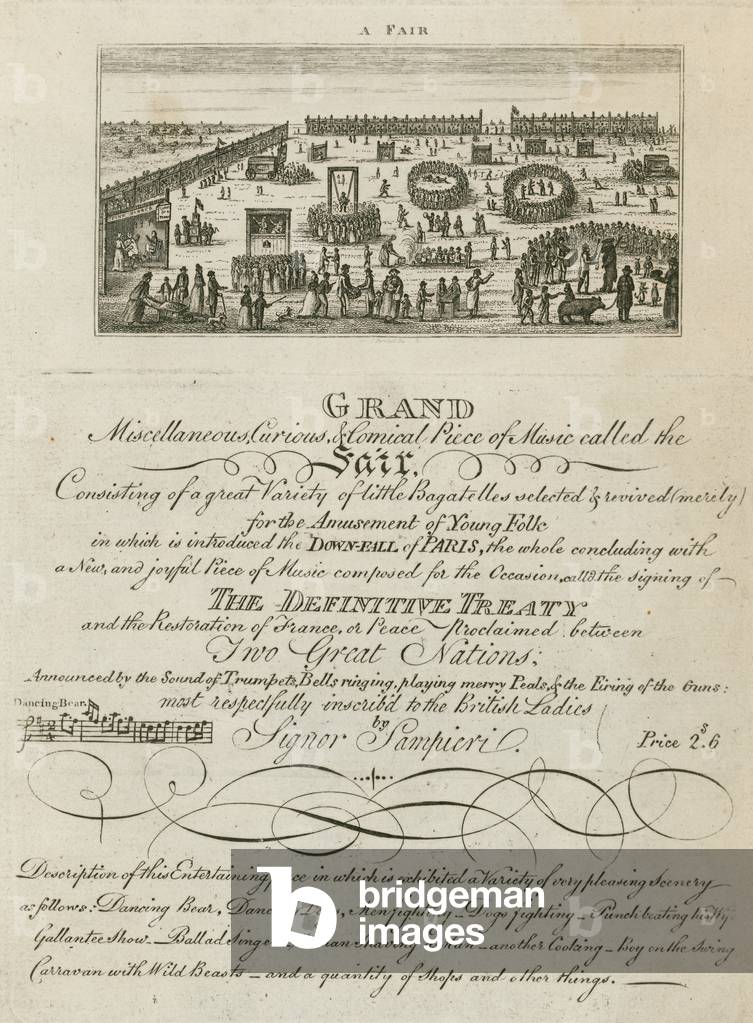 A FAIR
GRAND
Miscellaneous, Curious, & Comical Piece of Music called the
Fair,
Consisting of a great Variety of little Bagatelles selected & revived (merely)
for the Amusement of Young Folk
in which is introduced the DOWN-FALL of PARIS, the whole concluding with
a New, and joyful Piece of Music composed for the Occasion, call'd the signing of
THE DEFINITIVE TREATY
and the Restoration of France, or Peace Proclaimed between
Two Great Nations;
Announced by the Sound of Trumpets, Bells ringing, playing merry Peals, & the Firing of the Guns:
most respectfully inscrib'd to the British Ladies
Dancing Bear
by
Signor Sampieri.
Price 2s.6
Description of this Entertaining in which is exhibited a Variety of very pleasing Scenery
as follows: Dancing Bear, Men fighting - Dogs fighting - Punch beating his
Gallantee Show - Ballad - another Cooking - Boy on the Swing
Carravan with Wild Beasts - and a quantity of Shops and other things.
b bridgeman
images